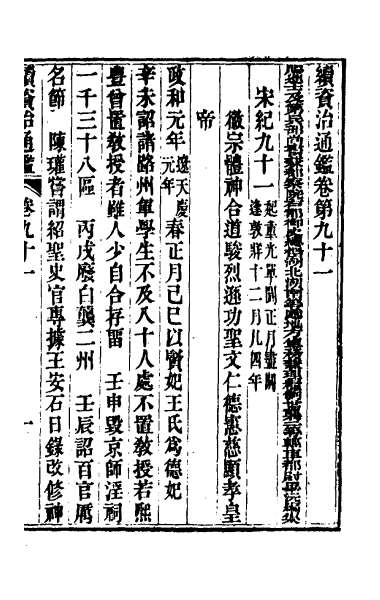 續資治通鑑卷第九十一
宋紀九十一起重光單閼正月盡閼逢敦牂十二月凡四年
徽宗體神合道駿烈遜功聖文仁德憲慈顯孝皇
帝
政和元年遼天慶元年春正月己巳以賢妃王氏爲德妃
辛未詔諸路州軍學生不及八十人處不置敎授若熙
豐曾置敎授者雖人少自合存畱　壬申毀京師淫祠
一千三十八區　丙戌廢白龔二州　壬辰詔百官厲
名節　陳瓘嘗謂紹聖史官專據王安石日錄改修神
續資治通鑑　卷九十一　一